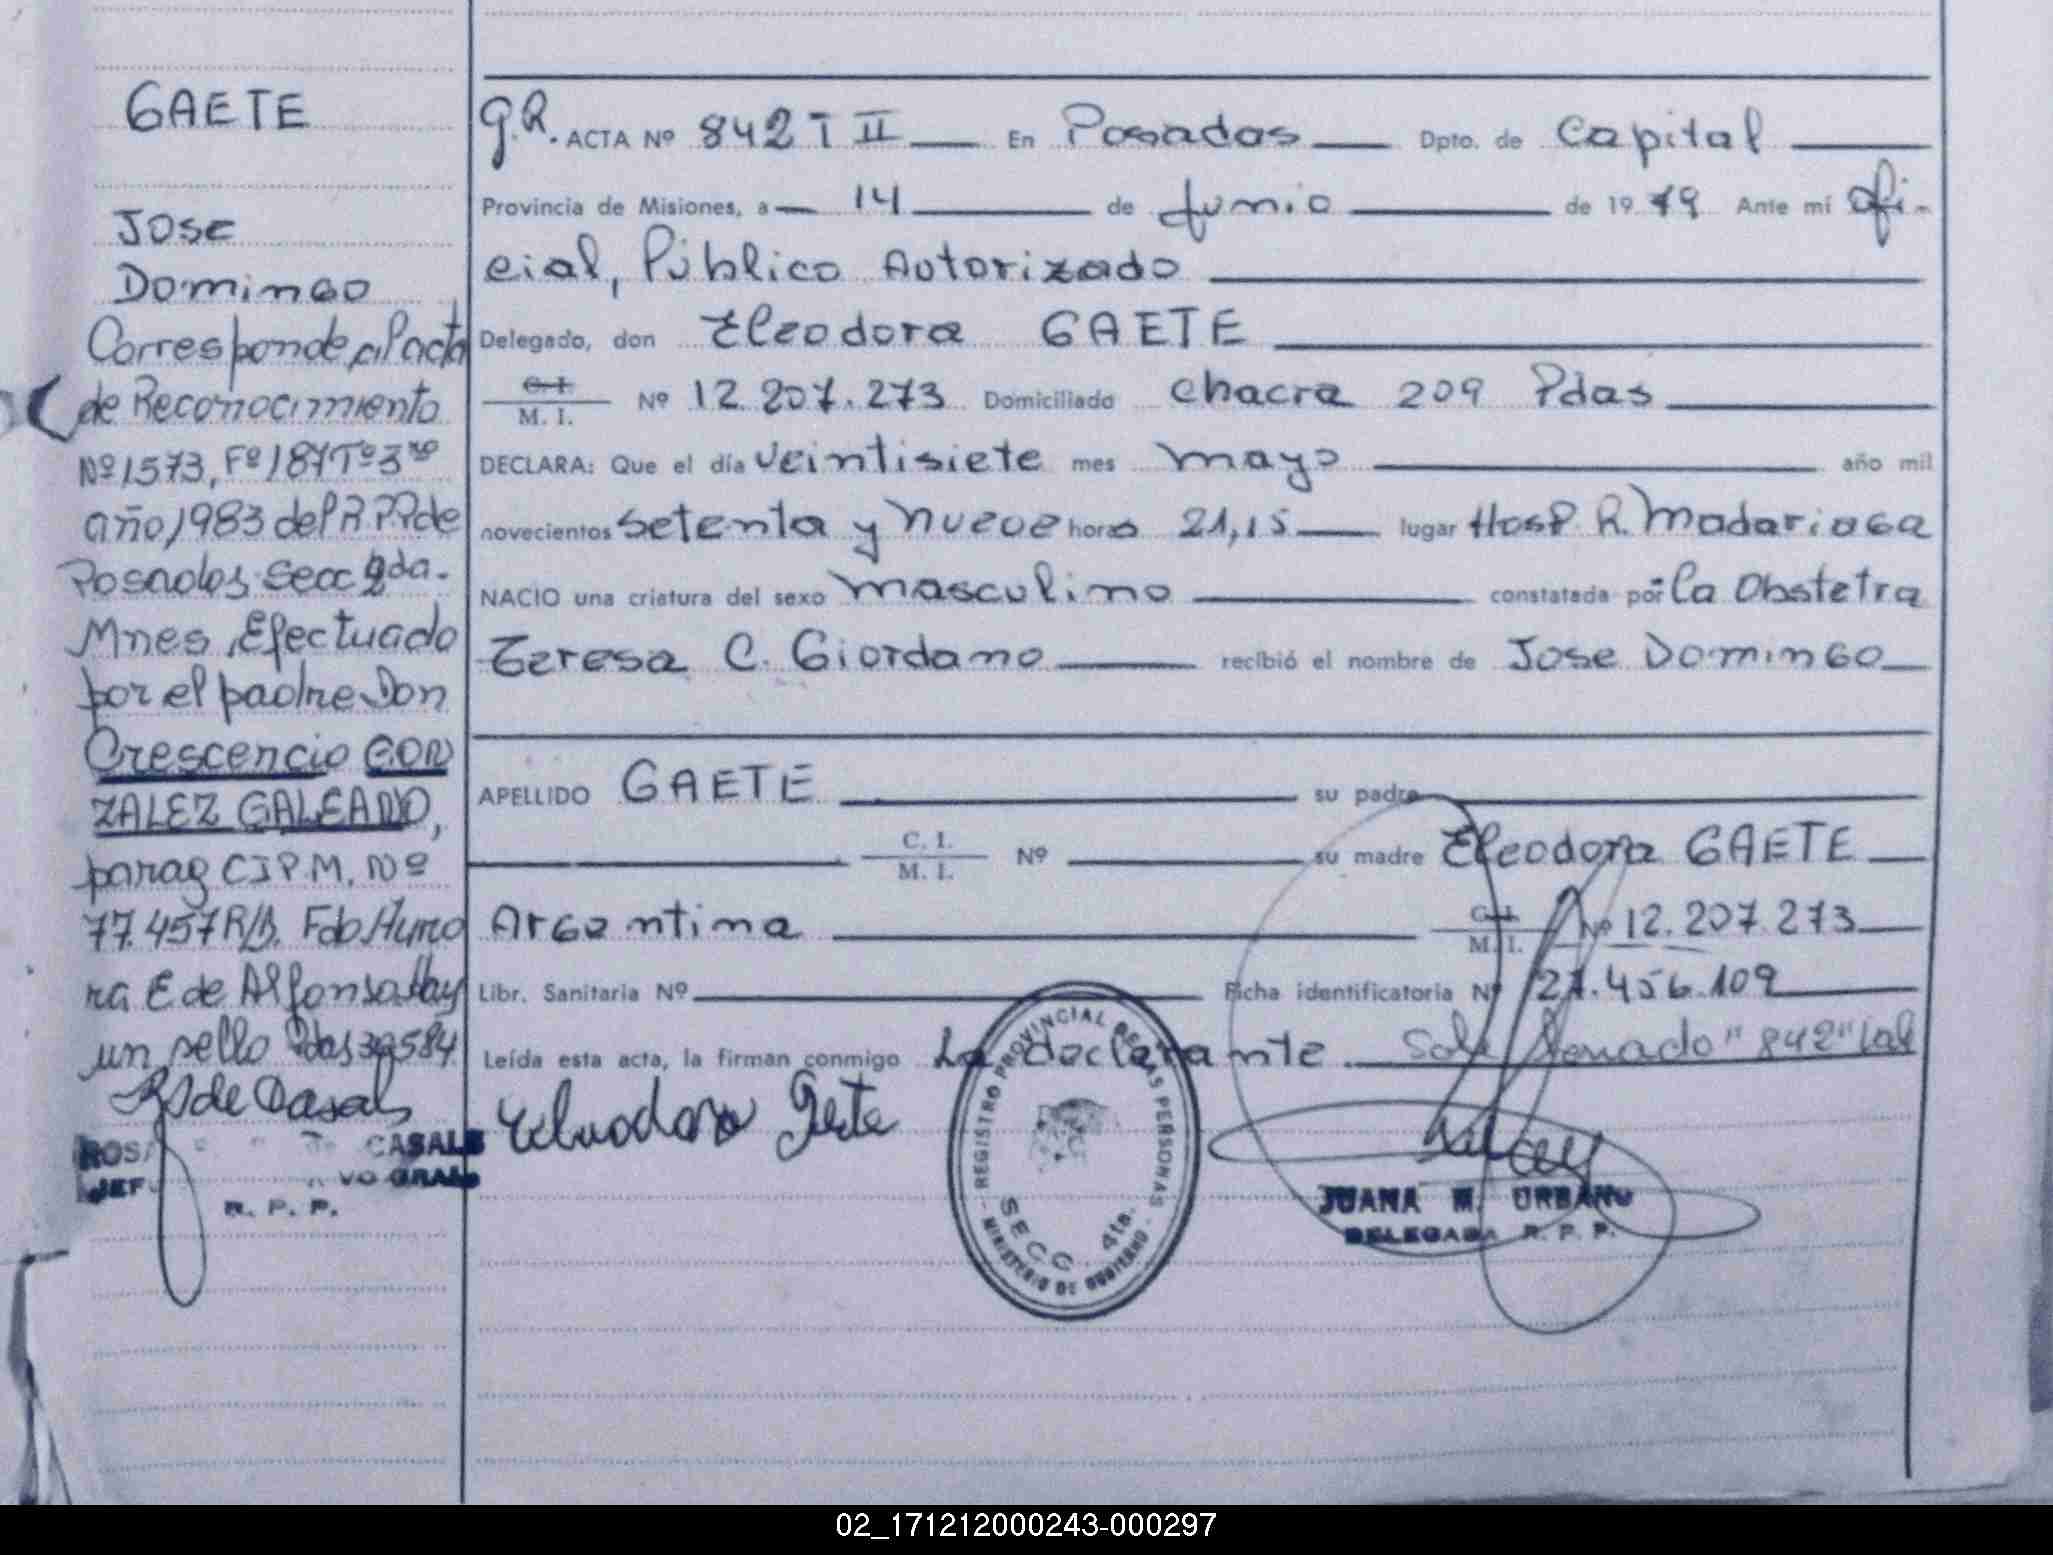 GAETE
JOSE
Domingo
Corresponde al acta
de Reconocimiento
Nº 1573, Fº 187 Tº 3ro
año 1983 del R.P.P de
Posadas Secc 2da.
Mnes, Efectuado
por el padre Don
Crescencio GON
ZALEZ GALEANO,
parag C.I.P.M. Nº
77.457 R/B. Fdo Auro
ra E de Alfonso Hay
un sello Pdas
R de Casals
ROSA CASALS
JEF VO GRAL
R. P. P.
G.R. ACTA Nº 842 T II En Posadas Dpto. de Capital
Provincia de Misiones, a 14 de Junio de 19 79 Ante mí Ofi-
cial, Público Autorizado
Delegado, don Eleodora GAETE
C. I.
M. I. Nº 12.207.273 Domiciliado Chacra 209 Pdas
DECLARA: Que el día veintisiete mes mayo año mil
novecientos setenta y nueve horas 21,15 lugar Hosp R. Madariaga
NACIO una criatura del sexo masculino constatada por: la Obstetra
Teresa C. Giordano recibió el nombre de Jose Domingo
APELLIDO GAETE su padre
C. I.
M. I. Nº su madre Eleodora GAETE
Argentina C. I.
M. I. Nº 12.207.273
Libr. Sanitaria Nº Ficha identificatoria Nº 27.456.109
Leída esta acta, la firman conmigo La declarante "842" Vale
Eleuodora Gaete
REGISTRO PROVINCIAL DE LAS PERSONAS
SECC. 4ta.
MINISTERIO DE GOBIERNO
JUANA M. URBANO
DELEGADA R. P. P.
02_171212000243-000297